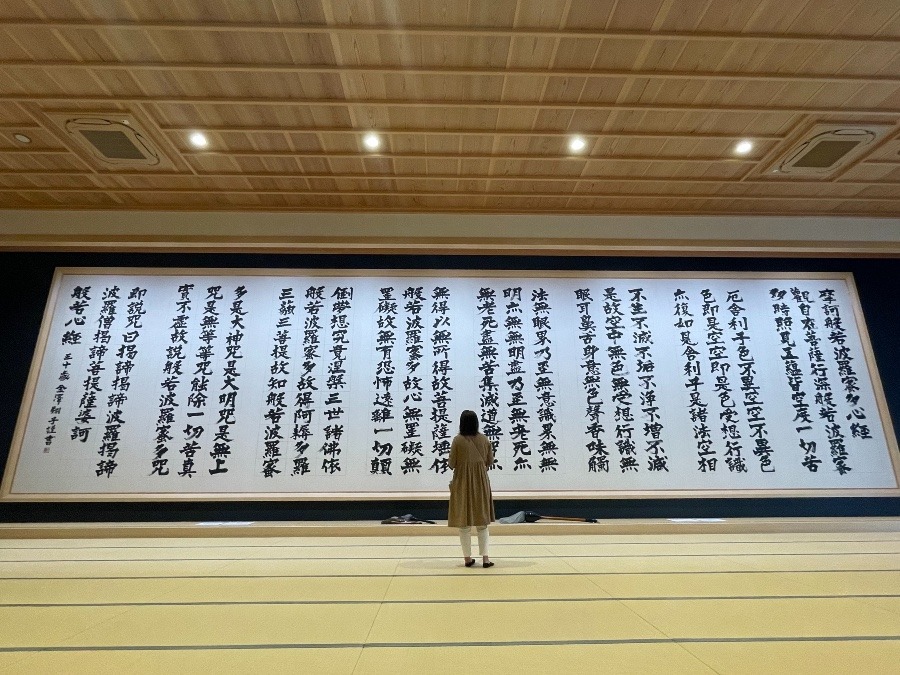 摩訶般若波羅蜜多心經
觀自在菩薩行深般若波羅蜜
多時照見五蘊皆空度一切苦
厄舍利子色不異空空不異色
色即是空空即是色受想行識
亦復如是舍利子是諸法空相
不生不滅不垢不淨不增不減
是故空中無色無受想行識無
眼耳鼻舌身意無色聲香味觸
法無眼界乃至無意識界無無
明亦無無明盡乃至無老死亦
無老死盡無苦集滅道無
無得以無所得故菩提薩埵依
般若波羅蜜多故心無罣礙無
罣礙故無有恐怖遠離一切顛
倒夢想究竟涅槃三世諸佛依
般若波羅蜜多故得阿耨多羅
三藐三菩提故知般若波羅蜜
多是大神咒是大明咒是無上
咒是無等等咒能除一切苦真
實不虛故說般若波羅蜜多咒
即說咒曰揭諦揭諦波羅揭諦
波羅僧揭諦菩提薩婆訶
般若心經 三十歳 金澤翔子謹書